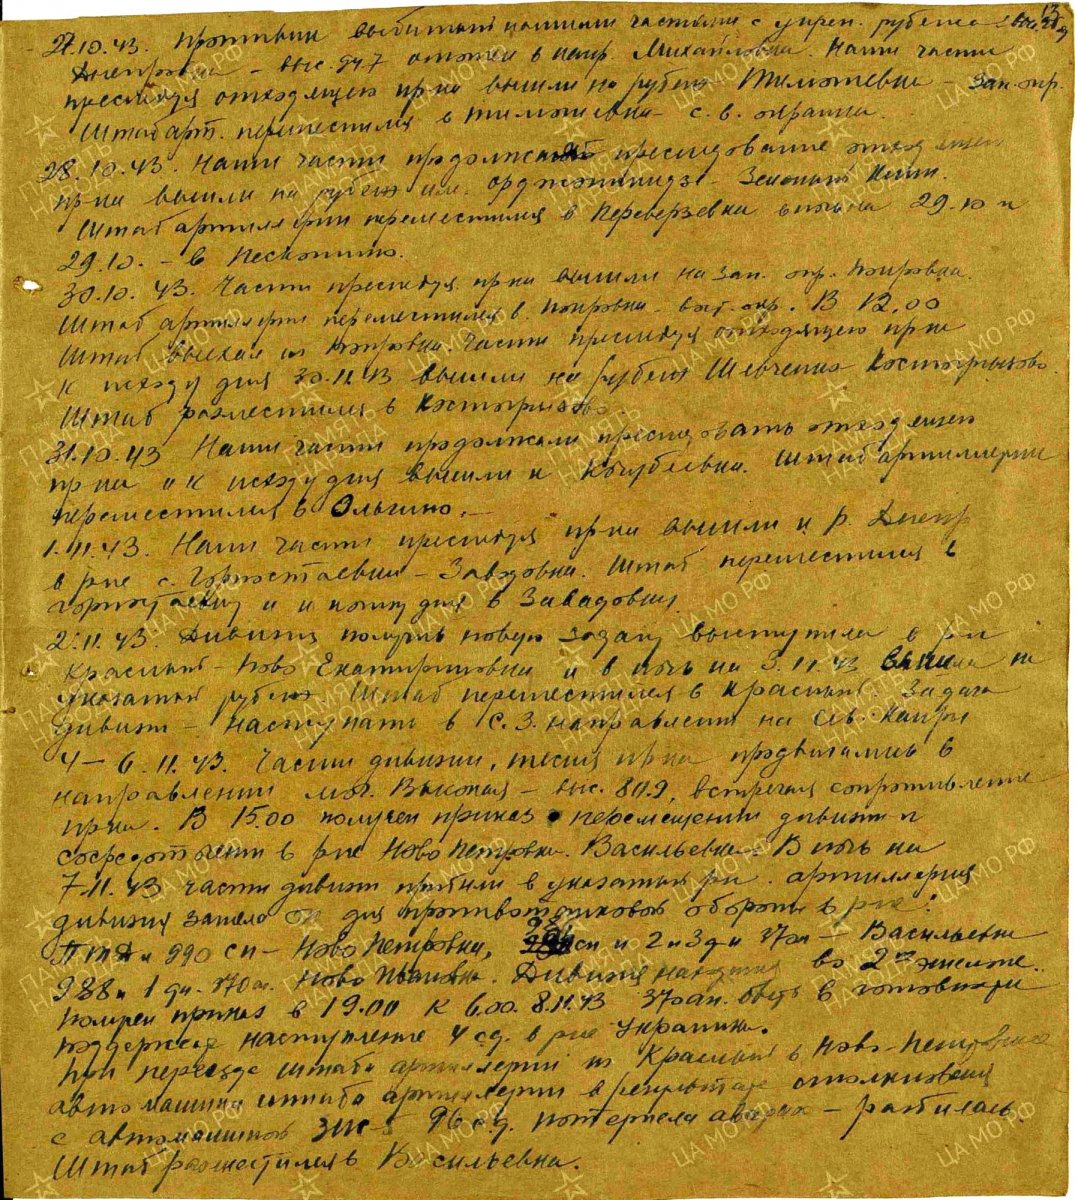 13
27.10.43. Противник выбитый нашими частями с укреп. рубежа
Днепровка – выс. 94.7 отошел в напр. Михайловка. Наши части
преследуя отходящего пр-ка вышли на рубеж Тимошевка – зап. окр.
Штабарт. переместился в Тимошевка – с. в. окраина.
28.10.43. Наши части продолжали преследование отходящего
пр-ка вышли на рубеж им. Орджоникидзе – Зеленый
Штаб артиллерии переместился в Переверзевка в ночь на 29.10 и
29.10. – в Пескошино.
30.10.43. Части преследуя пр-ка вышли на зап. окр. Покровка.
Штаб артиллерии переместился в Покровка – вост. окр. В 12.00
Штаб выехал из Покровка. Части преследуя отходящего пр-ка
к исходу дня 30.11.43 вышли на рубеж Шевченко Костогрызово.
Штаб разместился в Костогрызово.
31.10.43 Наши части продолжали преследовать отходящего
пр-ка и к исходу дня вышли к Коцубеевка. Штаб артиллерии
переместился в Ольгино.
1.11.43. Наши части преследуя пр-ка вышли к р. Днепр
в р-не с. Горностаевка – Заводовка. Штаб переместился в
Горностаевку и к концу дня в Завадовка.
2.11.43. Дивизия получив новую задачу выступила в р-н
Красный – Ново Екатериновка и в ночь на 3.11.43 вышла на
указанный рубеж. Штаб переместился в Красный. Задача
дивизии – наступать в С.З. направлении на Сев. Каиры
4 – 6.11.43. Части дивизии, тесня пр-ка продвигались в
направлении мог. Высокая – выс. 80.9, встречая сопротивление
пр-ка. В 15.00 получен приказ о перемещении дивизии и
сосредоточении в р-не Ново Петровка. Васильевка. В ночь на
7.11.43 части дивизии прибыли в указанный р-н. Артиллерия
дивизии заняла ОП для противотанковой обороны в р-не:
ПТД и 990 сп – Ново Петровка, сп и 2 и 3 д-н 370 ап – Васильевка
988 и 1 дн. 370 ап. Ново Дивизия находится во 2м эшелоне.
Получен приказ в 19.00 к 6.00 8.11.43 370 ап. быть в готовности
поддержать наступление 4 сд. в р-не Украинка.
При переезде штаба артиллерии из Красный в Ново-Петровка
автомашина штаба артиллерии в результате столкновения
с автомашиной ЗИС-5 96 с.д. потерпела аварию – разбилась.
Штаб разместился в Васильевка.
ПАМЯТЬ НАРОДА
ЦА МО РФ